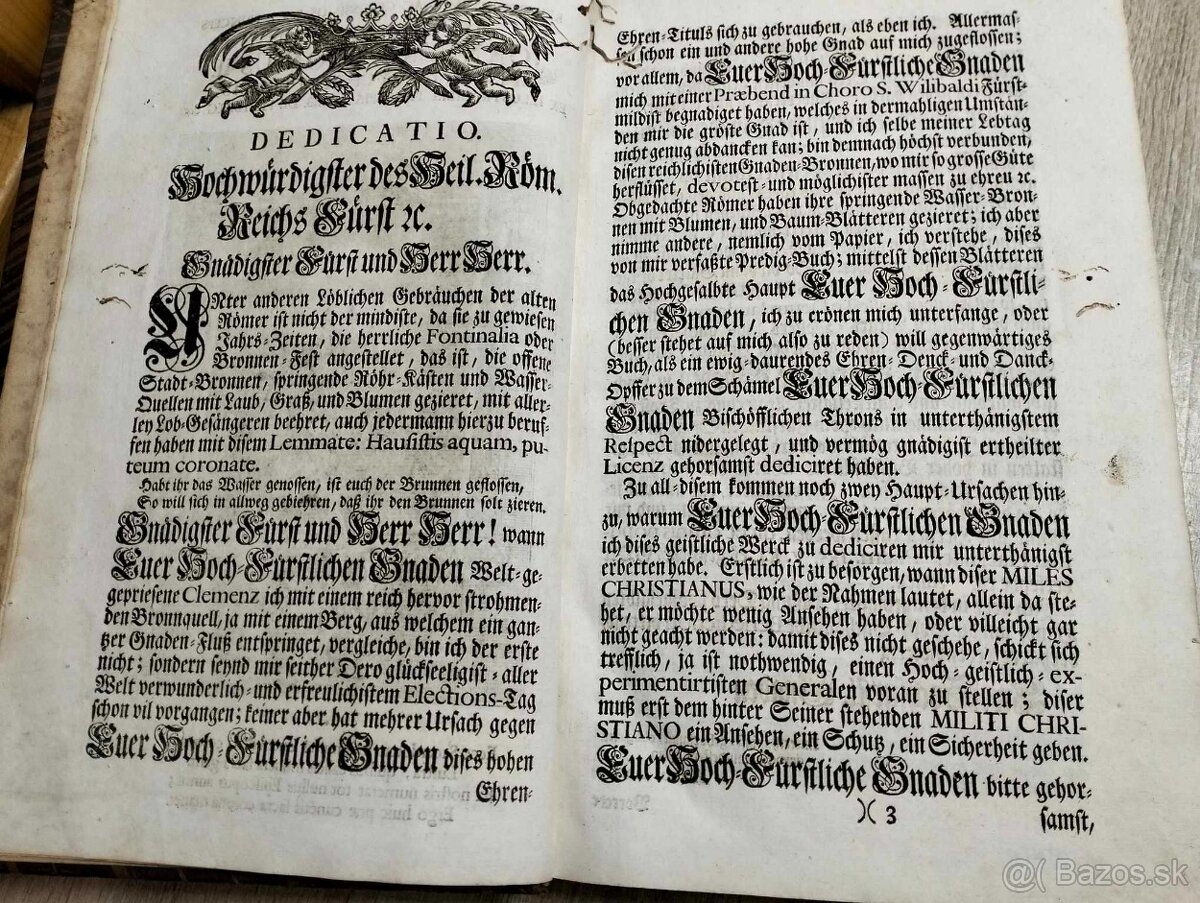 DEDICATIO.
Hochwürdigster des Heil. Röm.
Reichs Fürst ꝛc.
Gnädigster Fürst und Herr Herr.
UNter anderen Löblichen Gebräuchen der alten
Römer ist nicht der mindiste, da sie zu gewiesen
Jahrs-Zeiten, die herrliche Fontinalia oder
Bronnen-Fest angestellet, das ist, die offene
Stadt-Bronnen, springende Röhr-Kästen und Wasser-
Quellen mit Laub, Graß, und Blumen gezieret, mit aller-
ley Lob-Gesängeren beehret, auch jedermann hierzu beruf-
fen haben mit disem Lemmate: Hausistis aquam, pu-
teum coronate.
Habt ihr das Wasser genossen, ist euch der Brunnen geflossen,
So will sich in allweg gebiehren, daß ihr den Brunnen solt zieren.
Gnädigster Fürst und Herr Herr! wann
Euer Hoch-Fürstlichen Gnaden Welt-ge-
gepriesene Clemenz ich mit einem reich hervor strohmen-
den Bronnquell, ja mit einem Berg, aus welchem ein gan-
tzer Gnaden-Fluß entspringet, vergleiche, bin ich der erste
nicht; sondern seynd mir seither Dero glückseeligist-aller
Welt verwunderlich-und erfreulichistem Elections-Tag
schon vil vorgangen; keiner aber hat mehrer Ursach gegen
Euer Hoch-Fürstliche Gnaden dises hohen
Ehren-
Ehren-Tituls sich zu gebrauchen, als eben ich. Allermas-
sen schon ein und andere hohe Gnad auf mich zugeflossen;
vor allem, da Euer Hoch-Fürstliche Gnaden
mich mit einer Præbend in Choro S. Wilibaldi Fürst-
mildist begnadiget haben, welches in dermahligen Umstän-
den mir die gröste Gnad ist, und ich selbe meiner Lebtag
nicht genug abdancken kan; bin demnach höchst verbunden,
disen reichlichisten Gnaden-Bronnen, wo mir so grosse Güte
herflüsset, devotest-und möglichister massen zu ehreu ꝛc.
Obgedachte Römer haben ihre springende Wasser-Bron-
nen mit Blumen, und Baum-Blätteren gezieret; ich aber
nimme andere, nemlich vom Papier, ich verstehe, dises
von mir verfaßte Predig-Buch; mittelst dessen Blätteren
das Hochgesalbte Haupt Euer Hoch-Fürstli-
chen Gnaden, ich zu crönen mich unterfange, oder
(besser stehet auf mich also zu reden) will gegenwärtiges
Buch, als ein ewig-daurendes Ehren-Denck-und Danck-
Opffer zu dem Schämel Euer Hoch-Fürstlichen
Gnaden Bischöfflichen Throns in unterthänigstem
Respect nidergelegt, und vermög gnädigist ertheilter
Licenz gehorsamst dediciret haben.
Zu all-disem kommen noch zwey Haupt-Ursachen hin-
zu, warum Euer Hoch-Fürstlichen Gnaden
ich dises geistliche Werck zu dediciren mir unterthänigst
erbetten habe. Erstlich ist zu besorgen, wann diser MILES
CHRISTIANUS, wie der Nahmen lautet, allein da ste-
het, er möchte wenig Ansehen haben, oder villeicht gar
nicht geacht werden: damit dises nicht geschehe, schickt sich
trefflich, ja ist nothwendig, einen Hoch-geistlich-ex-
perimentirtisten Generalen voran zu stellen; diser
muß erst dem hinter Seiner stehenden MILITI CHRI-
STIANO ein Ansehen, ein Schutz, ein Sicherheit geben.
Euer Hoch-Fürstliche Gnaden bitte gehor-
)( 3
samst,
@( Bazos.sk